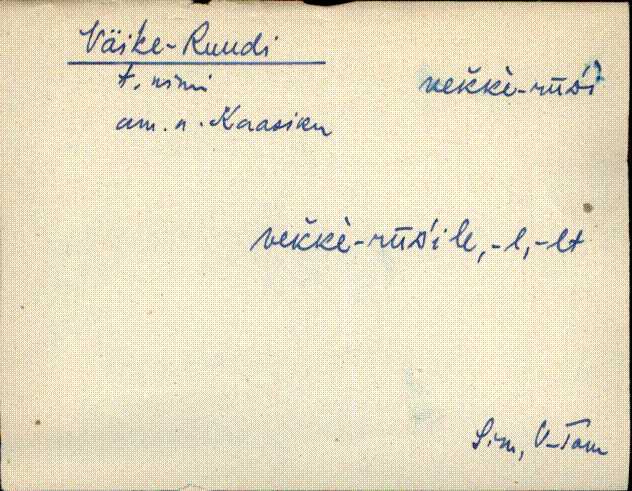 Väike-Ruudi
t. nimi
am. n. Kaasiku
veǩǩè-rūδ́i
veǩǩè-rūδ́ile, -l, -lt
Sim, V-Tam